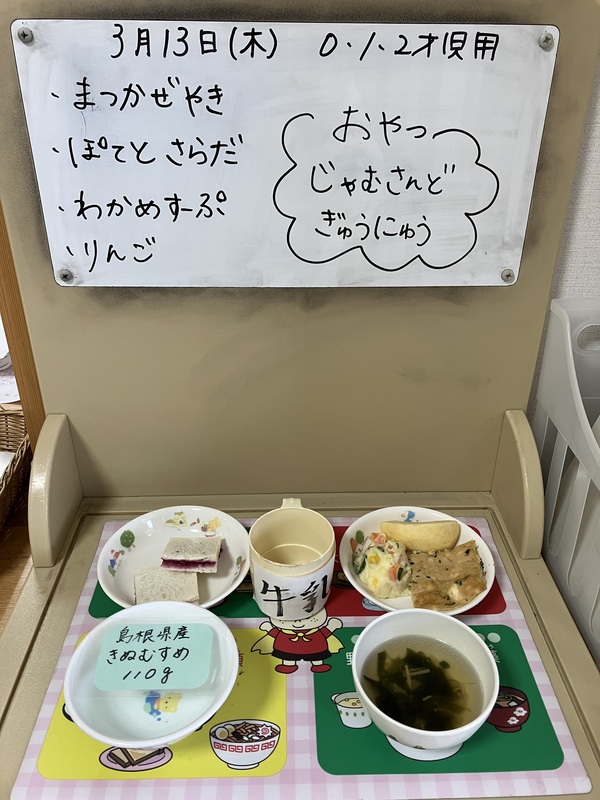 3月13日(木) 0・1・2才児用
・まつかぜやき
・ぽてとさらだ
・わかめすーぷ
・りんご
おやつ
じゃむさんど
ぎゅうにゅう
牛乳
島根県産
きぬむすめ
110g